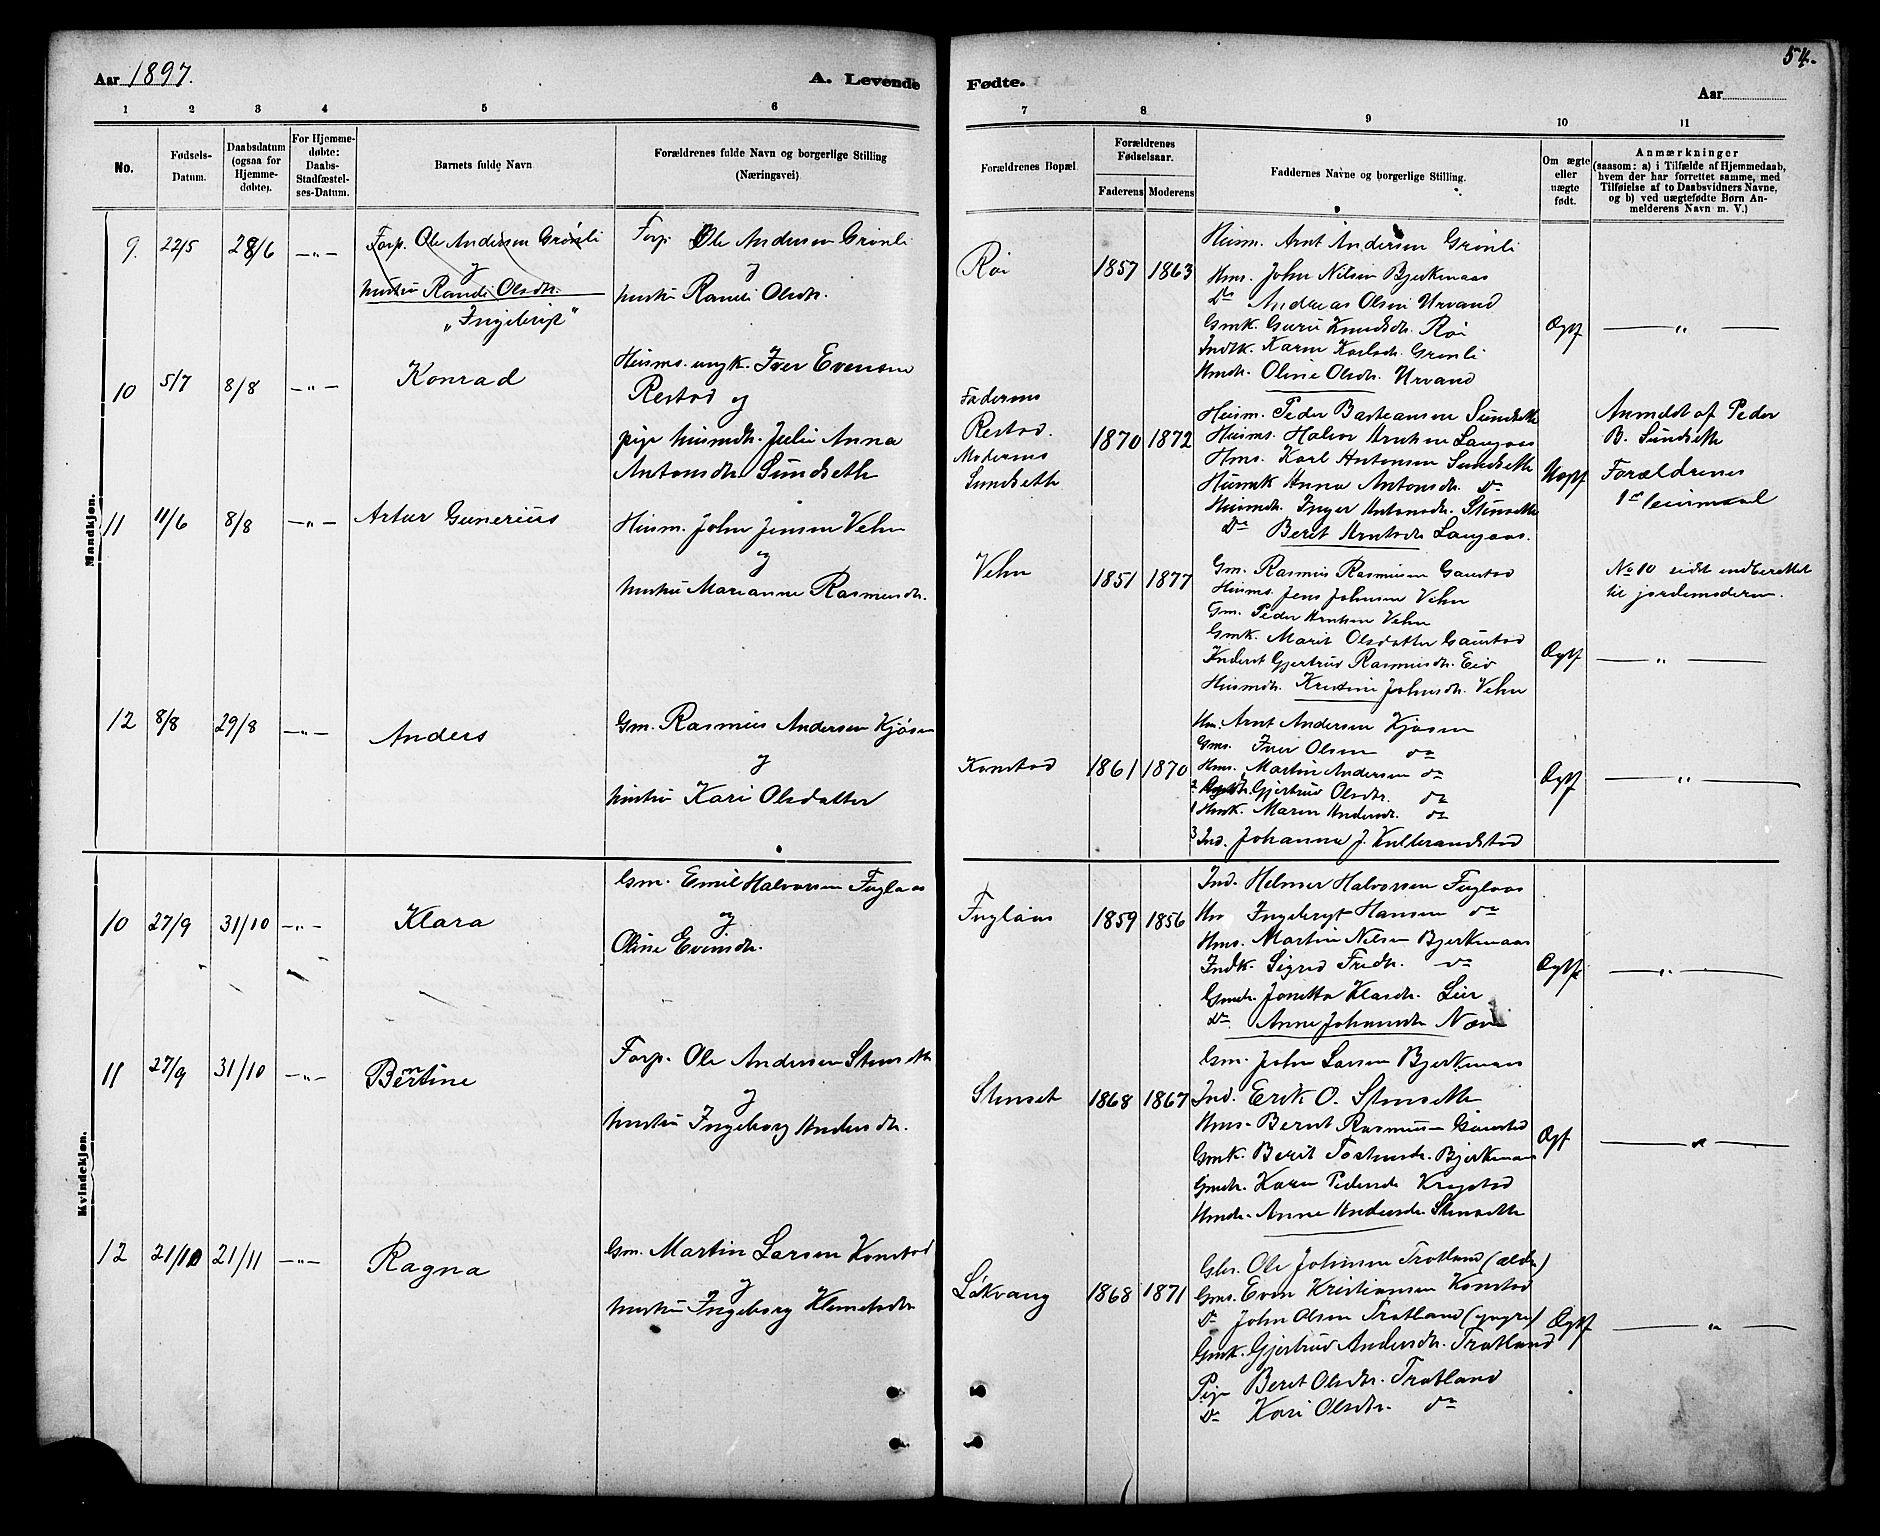 Aar 1897.
A. Levende Fødte.
54.
Aar
1 2 3 4 5 6 7 8 9 10 11
No.
Fødsels-Datum.
Daabsdatum (ogsaa for Hjemme-døbte).
For Hjemme-døbte: Daabs-Stadfæstel-ses-Datum.
Barnets fulde Navn
Forældrenes fulde Navn og borgerlige Stilling (Næringsvei)
Forældrenes Bopæl.
Forældrenes Fødselsaar.
Faderens Moderens
Faddernes Navne og borgerlige Stilling.
Om ægte eller uægte født.
Anmærkninger
(saasom: a) i Tilfælde af Hjemmedaab,
hvem der har forrettet samme, med
Tilføielse af to Daabsvidners Navne,
og b) ved uægtefødte Børn An-
melderens Navn m. V.)
Mandkjøn.
9. 22/5 28/6 —"—
Forp. Ole Andersen Grönli
og
hustru Randi Olsdtr.
Forp. Ole Andersen Grönli
og
hustru Randi Olsdtr.
Röi
1857 1863
Husm. Arnt Andersen Grönli
Hms. John Nilsen Bjerkmaas
Do Andreas Olsen Urvand
Gmk. Guru Knudsdtr. Röi
Indk. Karen Karlsdtr. Grönli
Hmdr. Oline Olsdtr. Urvand
Ægtf
—"—
10 5/7 8/8 —"—
Konrad
Husms. ungk. Iver Evensen
Restad og
pige husmdtr. Julie Anna
Antonsdtr. Sundseth
Faderens
Restad.
Moderens
Sundseth
1870 1872
Husm. Peder Basteansen Sundseth
Husms. Halvor Arntsen Langaas
Hms. Karl Antonsen Sundseth
Husmk Anna Antonsdtr. do
Husmdtr. Inger Antonsdtr. Stenseth
Do Beret Arntsdtr Langaas.
Uægtf
Anmeldt af Peder
B. Sundseth
Forældrenes
1ste leiermaal
11 11/6 8/8 —"—
Artur Gunerius
Husm. John Jensen Vehn
og
hustru Marianne Rasmusdtr.
Vehn
1851 1877
Gm. Rasmus Rasmusen Gaustad
Husms. Jens Johnsen Vehn
Gm. Peder Arntsen Vehn
Gmk. Marit Olsdatter Gaustad
Inderst Gjertrud Rasmusdtr. Eid
Husmdtr. Kristine Johnsdtr. Vehn
Ægtf
No 10 sidst indberettet
til jordemoderen.
—"—
12 8/8 29/8 —"—
Anders
Gm. Rasmus Andersen Kjøsen
og
hustru Kari Olsdatter
Konstad
1861 1870
Hm. Arnt Andersen Kjøsen
Gms. Iver Olsen do
Hms. Martin Andersen do
2 Gjertrud Olsdtr. do
1 Hmk. Maren Andersdtr. do
3 Ind. Johanna J. Kulbrandstad
Ægtf
—"—
Kvindekjøn.
10 27/9 31/10 —"—
Klara
Gm. Emil Halvorsen Fuglaas
og
Oline Evensdtr.
Fuglaas
1859 1856
Ind. Helmer Halvorsen Fuglaas
Hm Ingebrygt Hansen do
Hms. Martin Nilsen Bjerkmaas
Indk. Sigrid Fredtr. do
Gmdtr. Jonetta Klasdtr. Lier
Do. Anne Johansdtr
Ægtf
—"—
11 27/9 31/10 —"—
Berntine
Forp. Ole Andersen Stenseth
og
hustru Ingeborg Andersdtr.
Stenset
1868 1867
Gm. John Larsen Bjerkmaas
Ind. Erik O. Stenseth
Hms. Bernt Rasmusen Gaustad
Gmk. Berit Tostensdtr. Bjerkmaas
Gmdtr. Karen Pedersdtr Krogstad
Hmdtr. Anne Andersdtr Stenseth
Ægtf
—"—
12 21/10 21/11 —"—
Ragna
Gm. Martin Larsen Konstad
og
hustru Ingeborg Klemetsdtr
Løkvang
1868 1871
Gbr. Ole Johnsen Tratland (ældre)
Gms. Even Kristiansen Konstad
Do John Olsen Tratland (yngre)
Gmk. Gjertrud Andersdtr. Tratland
Pige Beret Olsdtr. Tratland
Do Kari Olsdtr. do
Ægtf
—"—